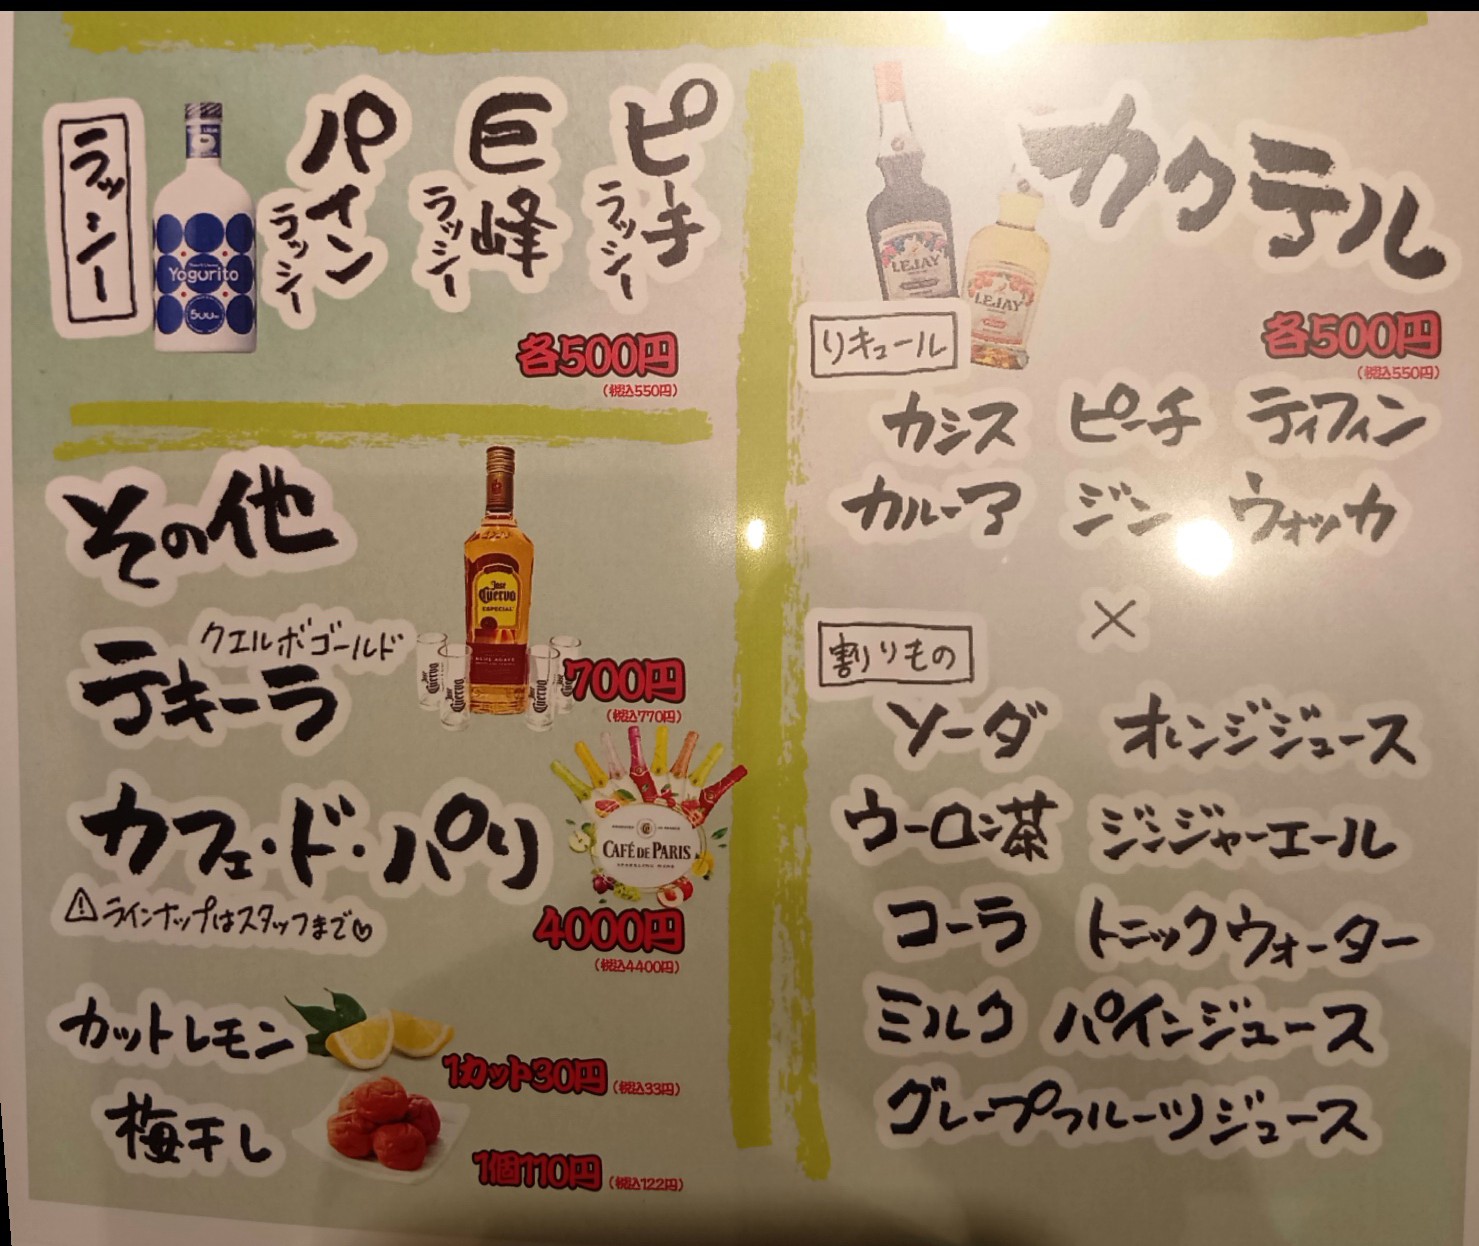 ラッシー
Yogurito
500
パインラッシー
巨峰ラッシー
ピーチラッシー
各500円
(税込550円)
その他
クエルボゴールド
テキーラ
Jose
Cuervo
ESPECIAL
700円
(税込770円)
カフェ・ド・パリ
CAFÉ DE PARIS
SPARKLING WINE
⚠ラインナップはスタッフまで♡
4000円
(税込4400円)
カットレモン
1カット30円(税込33円)
梅干し
1個110円(税込122円)
カクテル
LEJAY
LEJAY
各500円
(税込550円)
リキュール
カシス ピーチ ティフィン
カルーア ジン ウォッカ
×
割りもの
ソーダ オレンジジュース
ウーロン茶 ジンジャーエール
コーラ トニックウォーター
ミルク パインジュース
グレープフルーツジュース